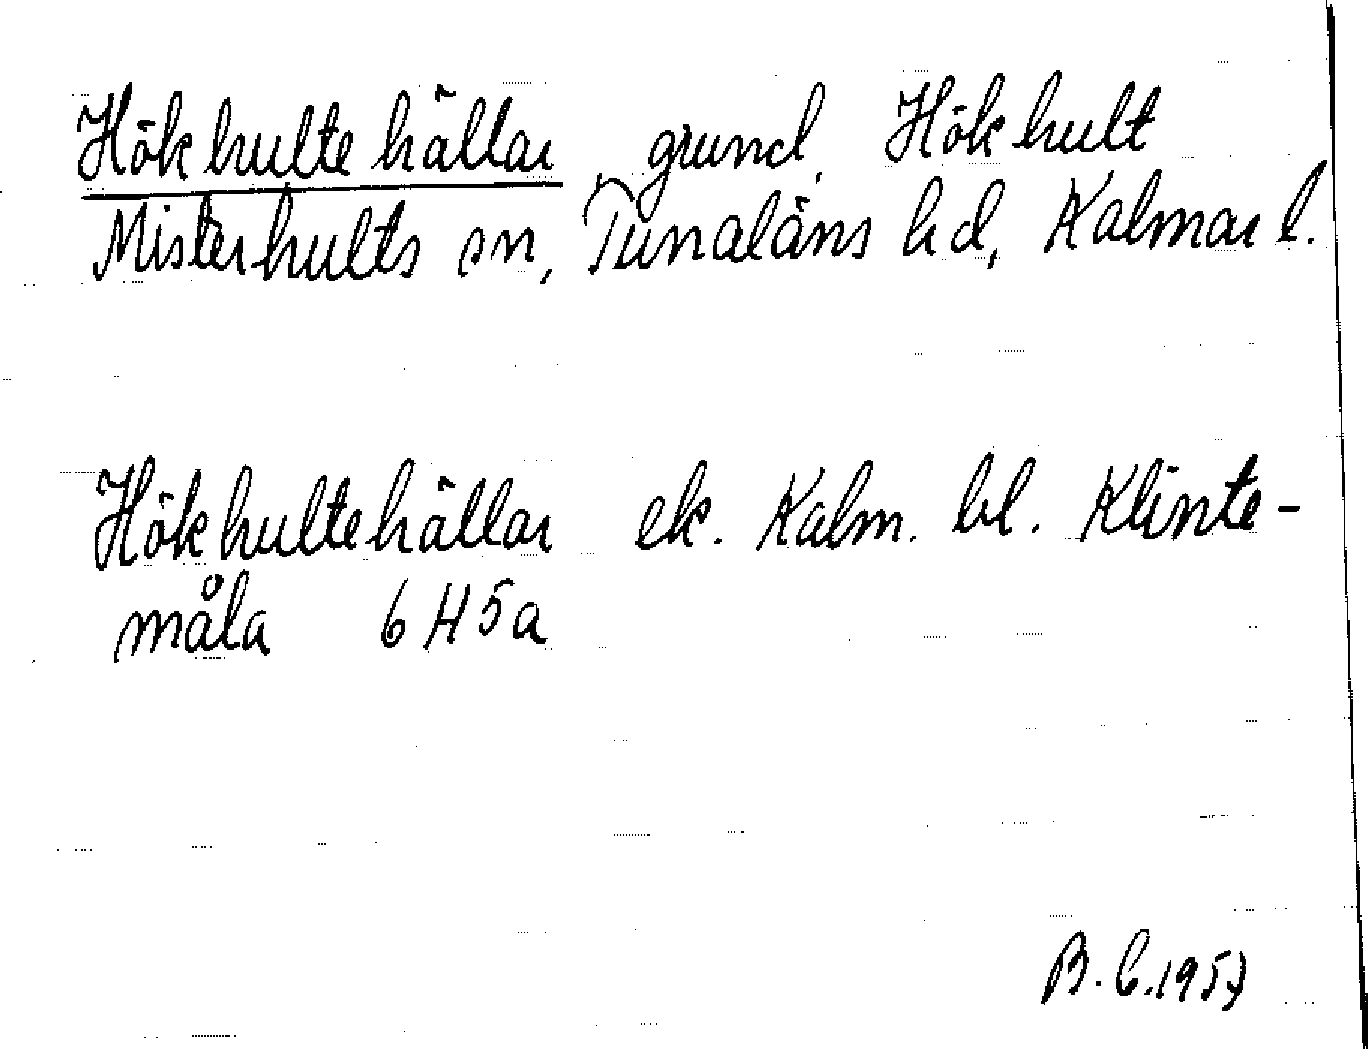 Hökhultehällar, grund, Hökhult
Misterhults sn, Tunaläns hd, Kalmar l.
Hökhultehällar ek. Kalm. bl. Klinte-
måla 6H5a
B.C. 1957